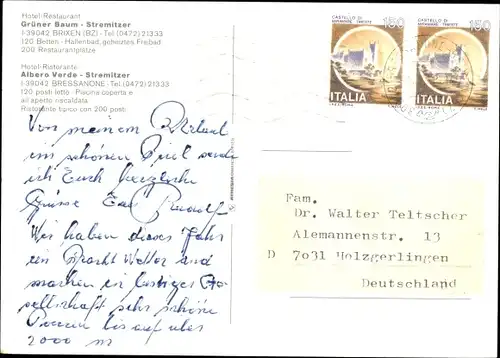 Hotel-Restaurant
Grüner Baum - Stremitzer
I-39042 BRIXEN (BZ) - Tel. (0472) 21333
120 Betten - Hallenbad, geheiztes Freibad
200 Restaurantplätze
Hotel-Ristorante
Albero Verde - Stremitzer
I-39042 BRESSANONE - Tel. (0472) 21333
120 posti letto - Piscina coperta e
all'aperto riscaldata
Ristorante tipico con 200 posti
Von meinem Urlaub
im schönen Tirol sende
ich Euch herzliche
Grüsse Euer Rudolf
Wir haben dieses Jahr
ein Pracht Wetter und
machen in lustiger Ge-
sellschaft sehr schöne
Touren bis auf über
2000 m
CASTELLO DI
MIRAMARE TRIESTE
150
ITALIA
CASTELLO DI
MIRAMARE TRIESTE
150
ITALIA
Fam.
Dr. Walter Teltscher
Alemannenstr. 13
D 7031 Holzgerlingen
Deutschland